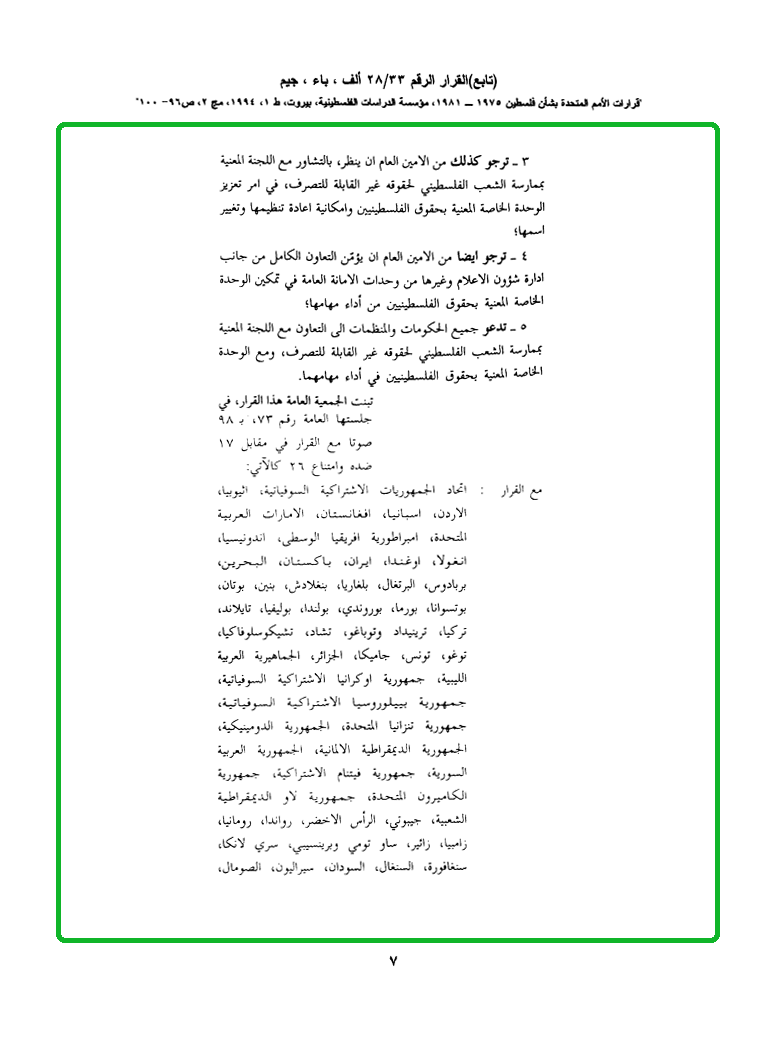 (تابع)القرار الرقم ٢٨/٣٣ ألف ، باء ، جيم
"قرارات الأمم المتحدة بشأن فلسطين ١٩٧٥ ــ ١٩٨١، مؤسسة الدراسات الفلسطينية، بيروت، ط ١، ١٩٩٤، مج ٢، ص٩٦- ١٠٠"
٣ ـ ترجو كذلك من الامين العام ان ينظر، بالتشاور مع اللجنة المعنية
بممارسة الشعب الفلسطيني لحقوقه غير القابلة للتصرف، في امر تعزيز
الوحدة الخاصة المعنية بحقوق الفلسطينيين وامكانية اعادة تنظيمها وتغيير
اسمها؛
٤ ـ ترجو ايضا من الامين العام ان يؤمّن التعاون الكامل من جانب
ادارة شؤون الاعلام وغيرها من وحدات الامانة العامة في تمكين الوحدة
الخاصة المعنية بحقوق الفلسطينيين من أداء مهامها؛
٥ ـ تدعو جميع الحكومات والمنظمات الى التعاون مع اللجنة المعنية
بممارسة الشعب الفلسطيني لحقوقه غير القابلة للتصرف، ومع الوحدة
الخاصة المعنية بحقوق الفلسطينيين في أداء مهامهما.
تبنت الجمعية العامة هذا القرار، في
جلستها العامة رقم ٧٣، بـ ٩٨
صوتا مع القرار في مقابل ١٧
ضده وامتناع ٢٦ كالآتي:
مع القرار : اتحاد الجمهوريات الاشتراكية السوفياتية، اثيوبيا،
الاردن، اسبانيا، افغانستان، الامارات العربية
المتحدة، امبراطورية افريقيا الوسطى، اندونيسيا،
انغولا، اوغندا، ايران، باكستان، البحرين،
بربادوس، البرتغال، بلغاريا، بنغلادش، بنين، بوتان،
بوتسوانا، بورما، بوروندي، بولندا، بوليفيا، تايلاند،
تركيا، ترينيداد وتوباغو، تشاد، تشيكوسلوفاكيا،
توغو، تونس، جاميكا، الجزائر، الجماهيرية العربية
الليبية، جمهورية اوكرانيا الاشتراكية السوفياتية،
جمهورية بييلوروسيا الاشتراكية السوفياتية،
جمهورية تنزانيا المتحدة، الجمهورية الدومينيكية،
الجمهورية الديمقراطية الالمانية، الجمهورية العربية
السورية، جمهورية فيتنام الاشتراكية، جمهورية
الكاميرون المتحدة، جمهورية لاو الديمقراطية
الشعبية، جيبوتي، الرأس الاخضر، رواندا، رومانيا،
زامبيا، زائير، ساو تومي وبرينسيبي، سري لانكا،
سنغافورة، السنغال، السودان، سيراليون، الصومال،
٧